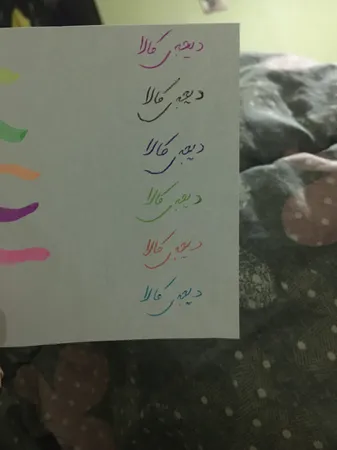 دیجی کالا
دیجی کالا
دیجی کالا
دیجی کالا
دیجی کالا
دیجی کالا